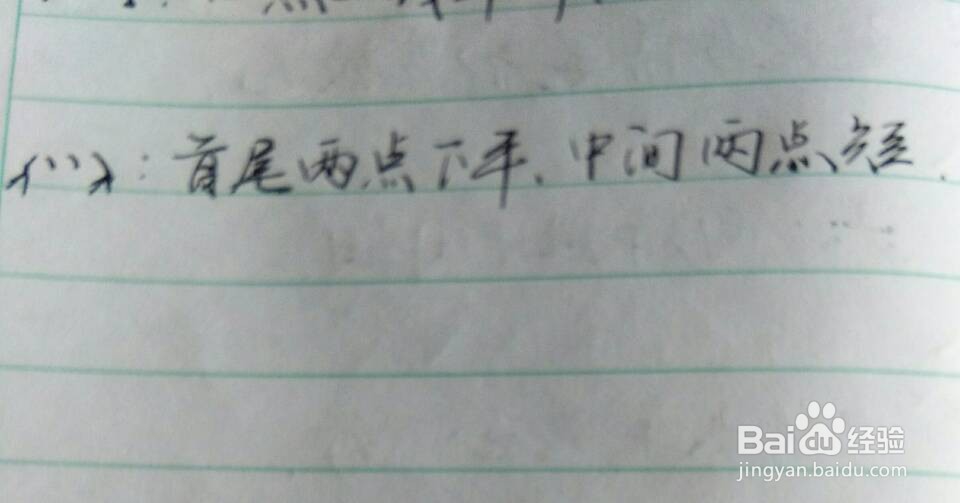 灬：首尾两点下平、中间两点短.
Baidu经验
jingyan.baidu.com